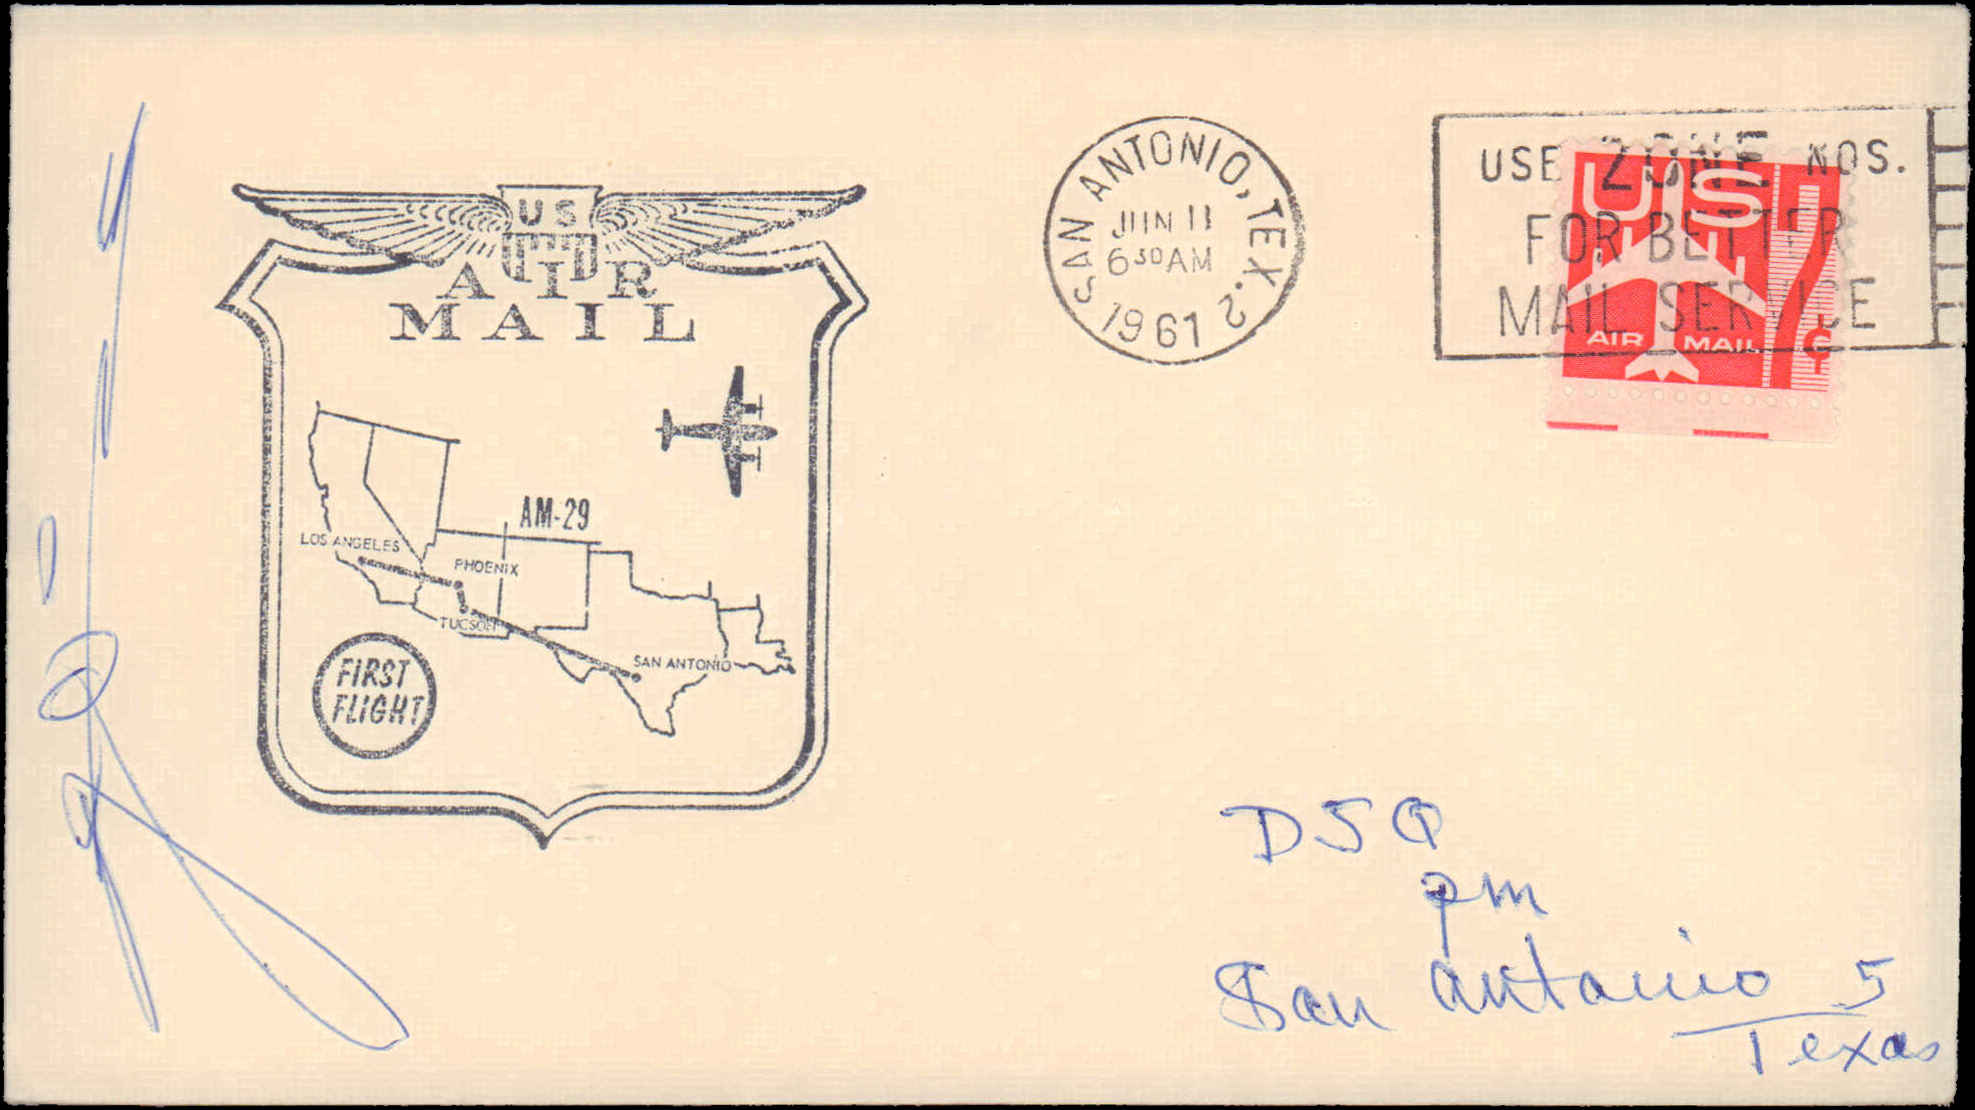 US
AIR
MAIL
AM-29
LOS ANGELES
PHOENIX
TUCSON
SAN ANTONIO
FIRST
FLIGHT
SAN ANTONIO, TEX. 2
JUN 11
6 30 AM
1961
USE ZONE NOS.
FOR BETTER
MAIL SERVICE
US
7¢
AIR MAIL
pm
San Antonio 5
Texas